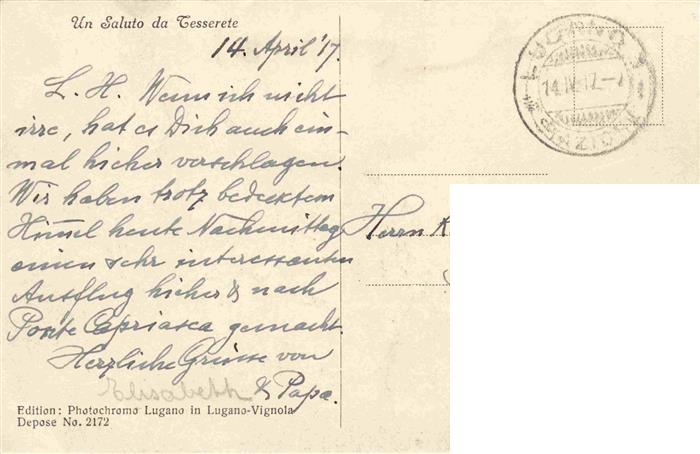 Un Saluto da Tesserete
14. April '17.
L. H. Wenn ich nicht
irre, hat es Dich auch ein-
mal hieher verschlagen.
Wir haben trotz bedecktem
Himmel heute Nachmittag
einen sehr interessanten
Ausflug hieher & nach
Ponte Capriasca gemacht.
Herzliche Grüsse von
Elisabeth & Papa.
Edition: Photochromo Lugano in Lugano-Vignola
Depose No. 2172
LUGANO 1
14.IV.17.-7
Herrn